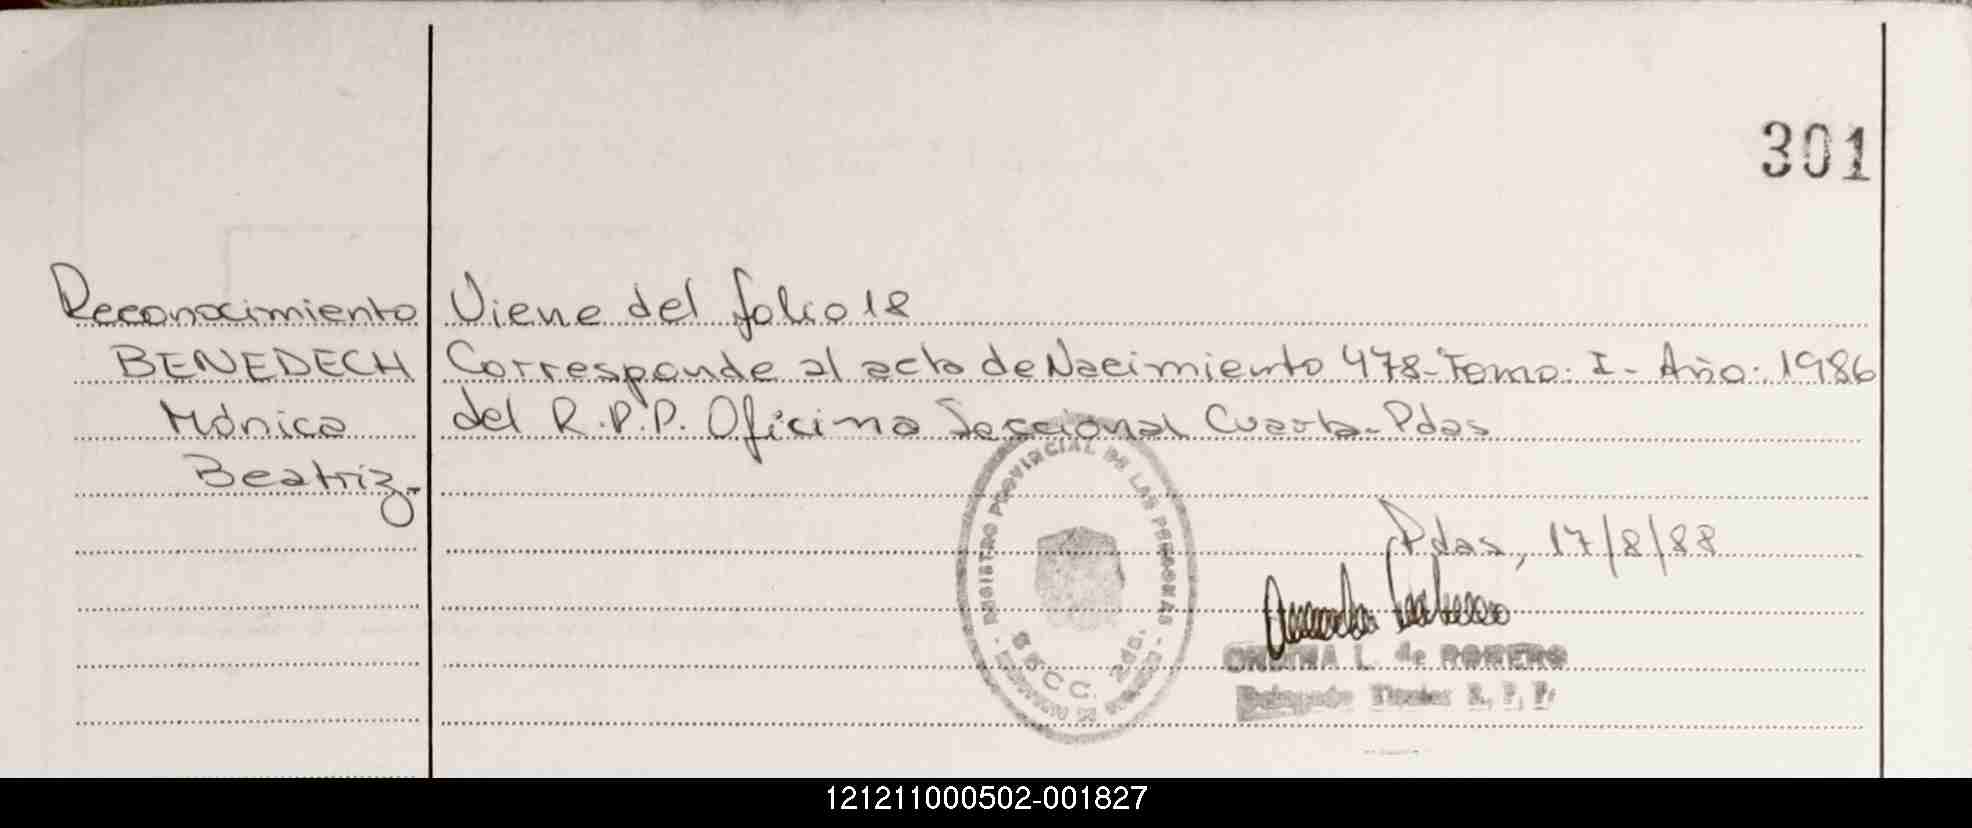 301
Reconocimiento Viene del folio 18
BENEDECH Corresponde al acta de Nacimiento 478-Tomo: I- Año: 1986
Mónica del R.P.P. Oficina Seccional Cuarta-Pdas
Beatriz.-
REGISTRO PROVINCIAL DE LAS PERSONAS
SECC. 2da.
Pdas, 17/8/88
L. de ROMERO
Delegado Titular R. P. P.
121211000502-001827